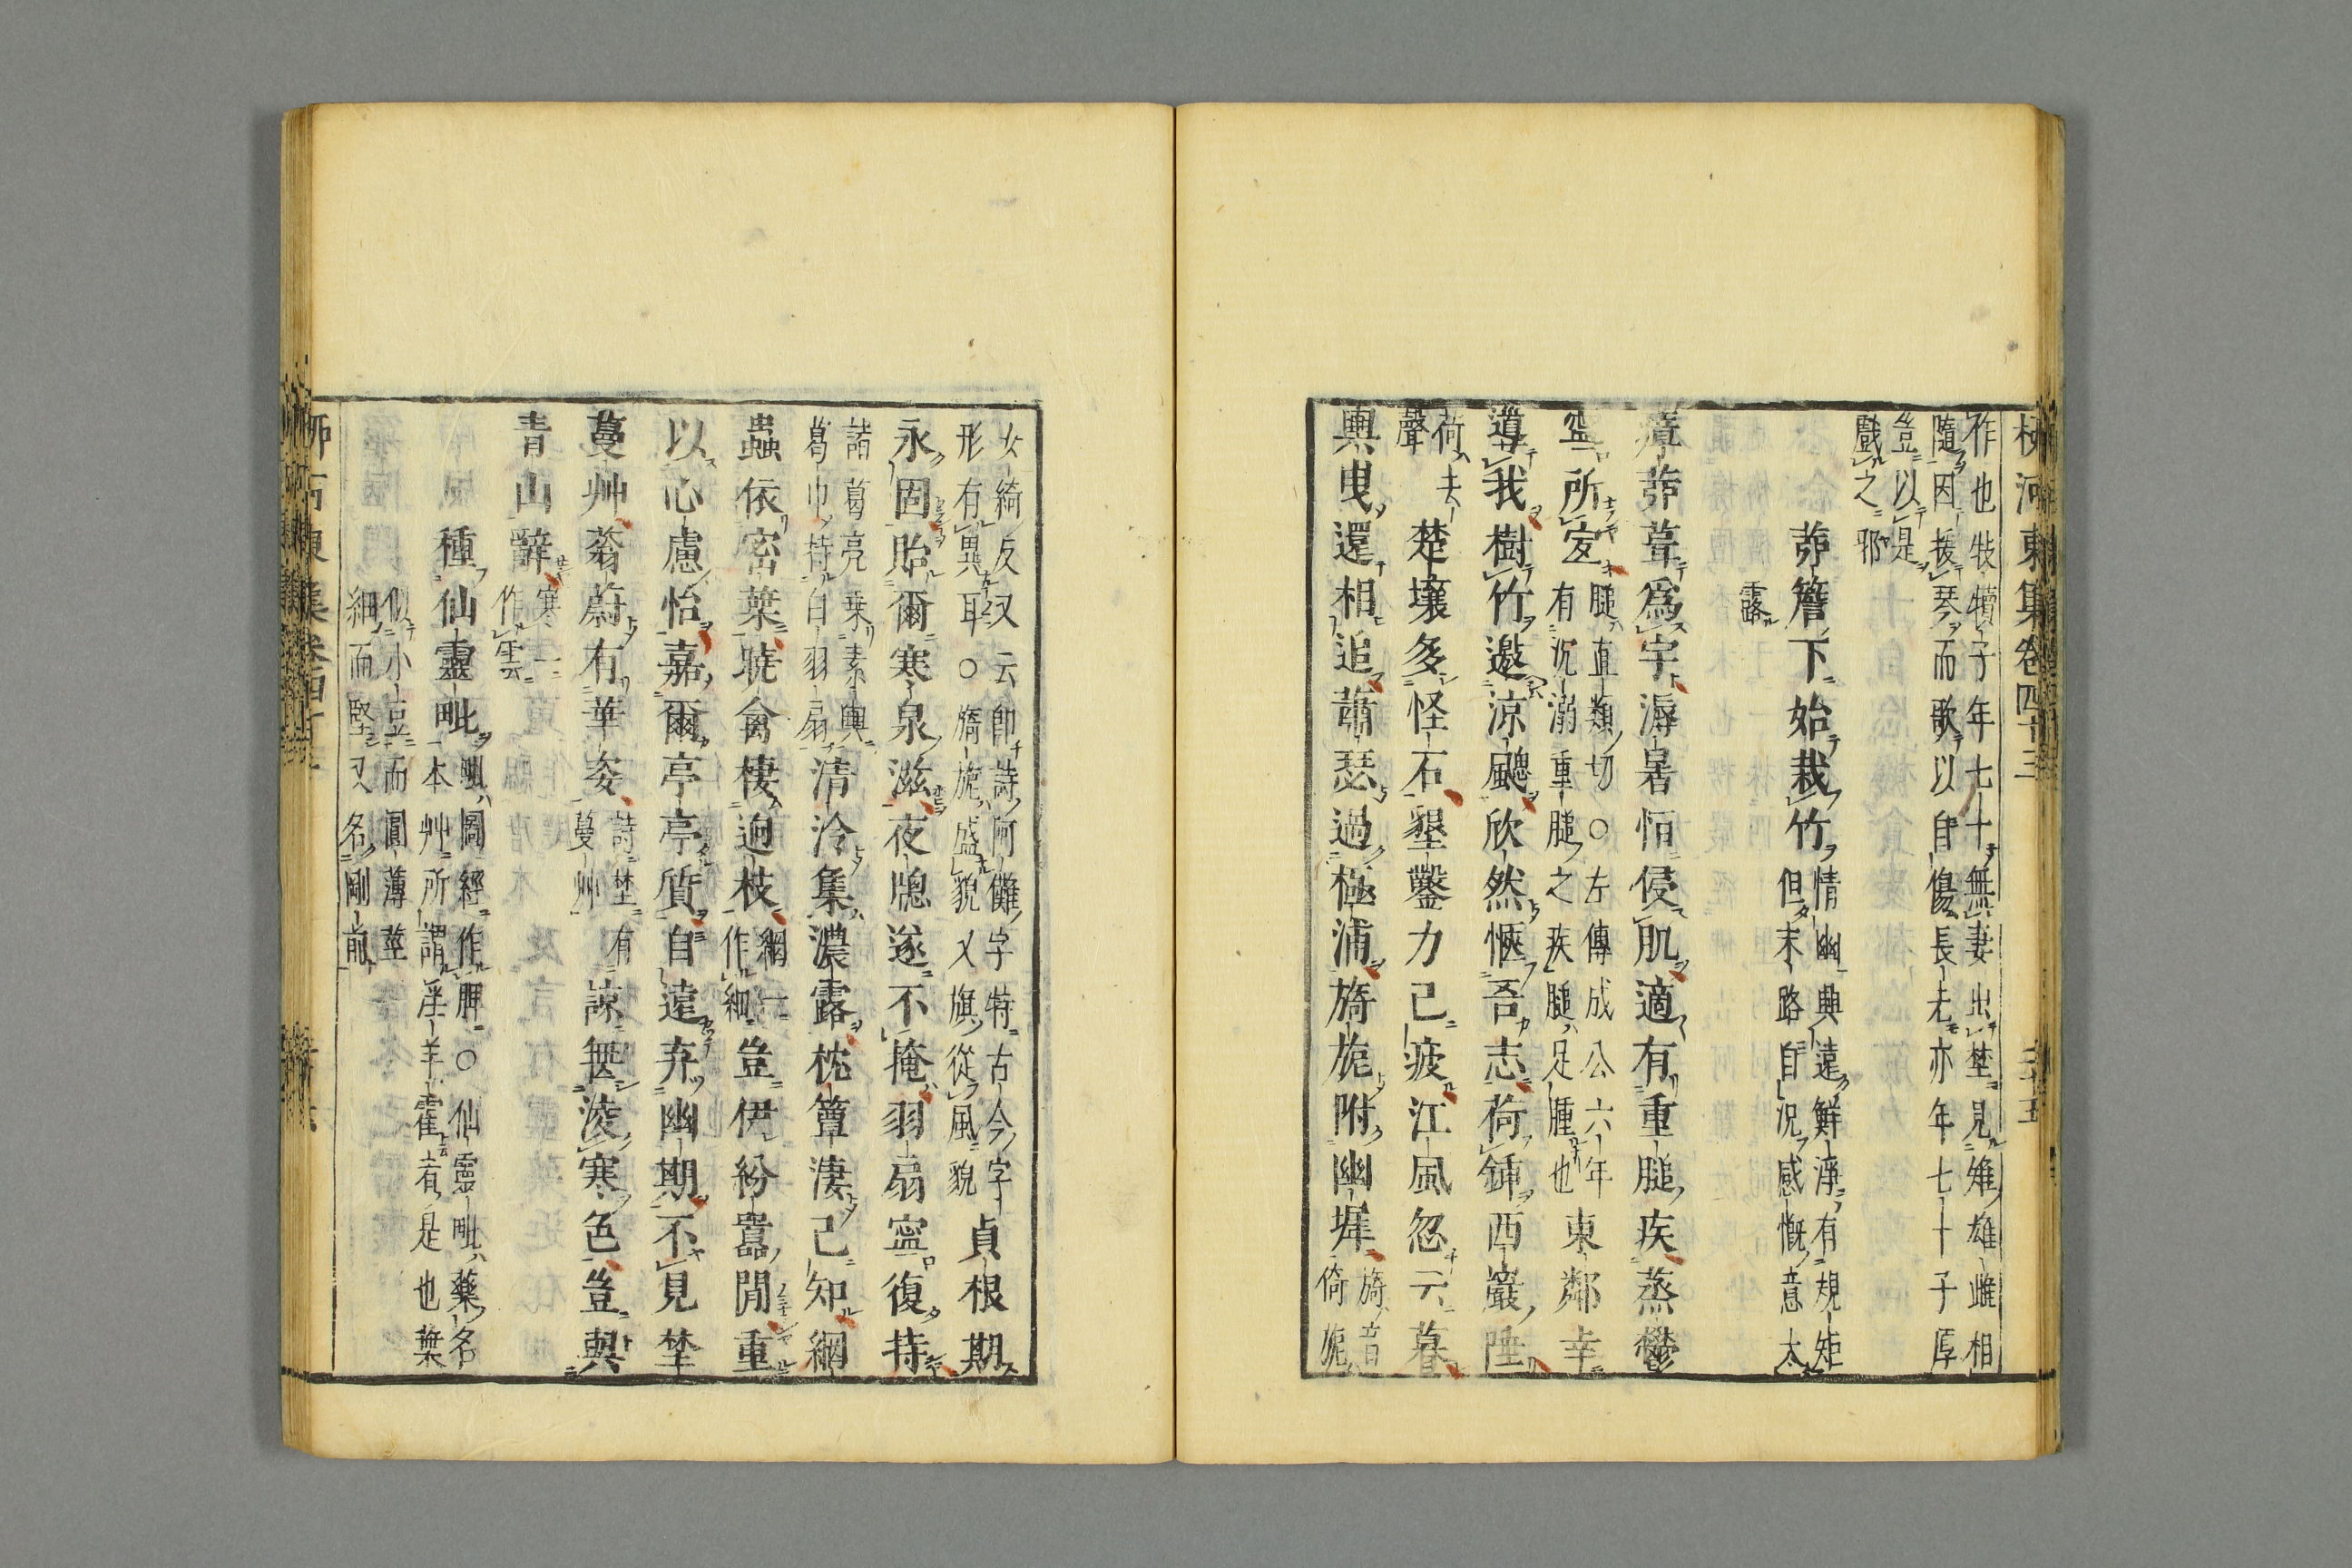 柳河東集卷四十三
三十五
作也牧犢子年七十無妻出埜見雉雄雌相
隨因援琴而歌以自傷長夫亦年七十子厚
豈以是
戲之邪
茆簷下始栽竹
情幽興遠鮮淨有規矩
但末路自況感慨意太
露
瘴茆葺爲宇溽暑恒侵肌適有重膇疾蒸鬱
寧所宜
膇直類切○左傳成公六年
有沉溺重膇之疾膇足腫也
東鄰幸
導我樹竹邀涼颸欣然愜吾志荷鍤西巖陲
荷去
聲
楚壤多怪石墾鑿力已疲江風忽云暮
輿曳還相追蕭瑟過極浦旖旎附幽墀
旖音
倚旎
女綺反又云卽詩阿儺字特古今字
形有異耳○旖旎盛貌又旗從風貌
貞根期
永固貽爾寒泉滋夜牕遂不掩羽扇寧復持
諸葛亮乗素輿
葛巾持白羽扇
清泠集濃露枕簟淒已知網
蟲依密葉曉禽棲迥枝
網一
作細
豈伊紛囂閒重
以心慮怡嘉爾亭亭質自遠弃幽期不見埜
蔓艸蓊蔚有華姿
詩埜有
蔓艸
諒無淩寒色豈與
青山辭
寒一
作雲
種仙靈毗
毗圖經作脾○仙靈毗藥名
本艸所謂淫羊霍者是也葉
似小豆而圓薄莖
細而堅又名剛前